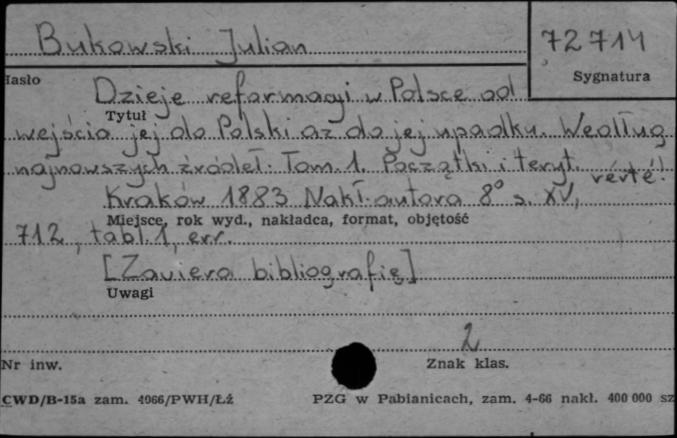 Bukowski Julian
72714
Hasło
Sygnatura
Dzieje reformacyi w Polsce od
Tytuł
wejścia jej do Polski aż do jej upadku. Według
najnowszych źródeł. Tom 1. Początki i teryt.
Kraków 1883 Nakł. autora 8° s. XV,
Miejsce, rok wyd., nakładca, format, objętość
712, tabl. 1, err.
[Zawiera bibliografię]
Uwagi
2
Nr inw.
Znak klas.
CWD/B-15a zam. 4066/PWH/Łź
PZG w Pabianicach, zam. 4-66 nakł. 400 000 sz